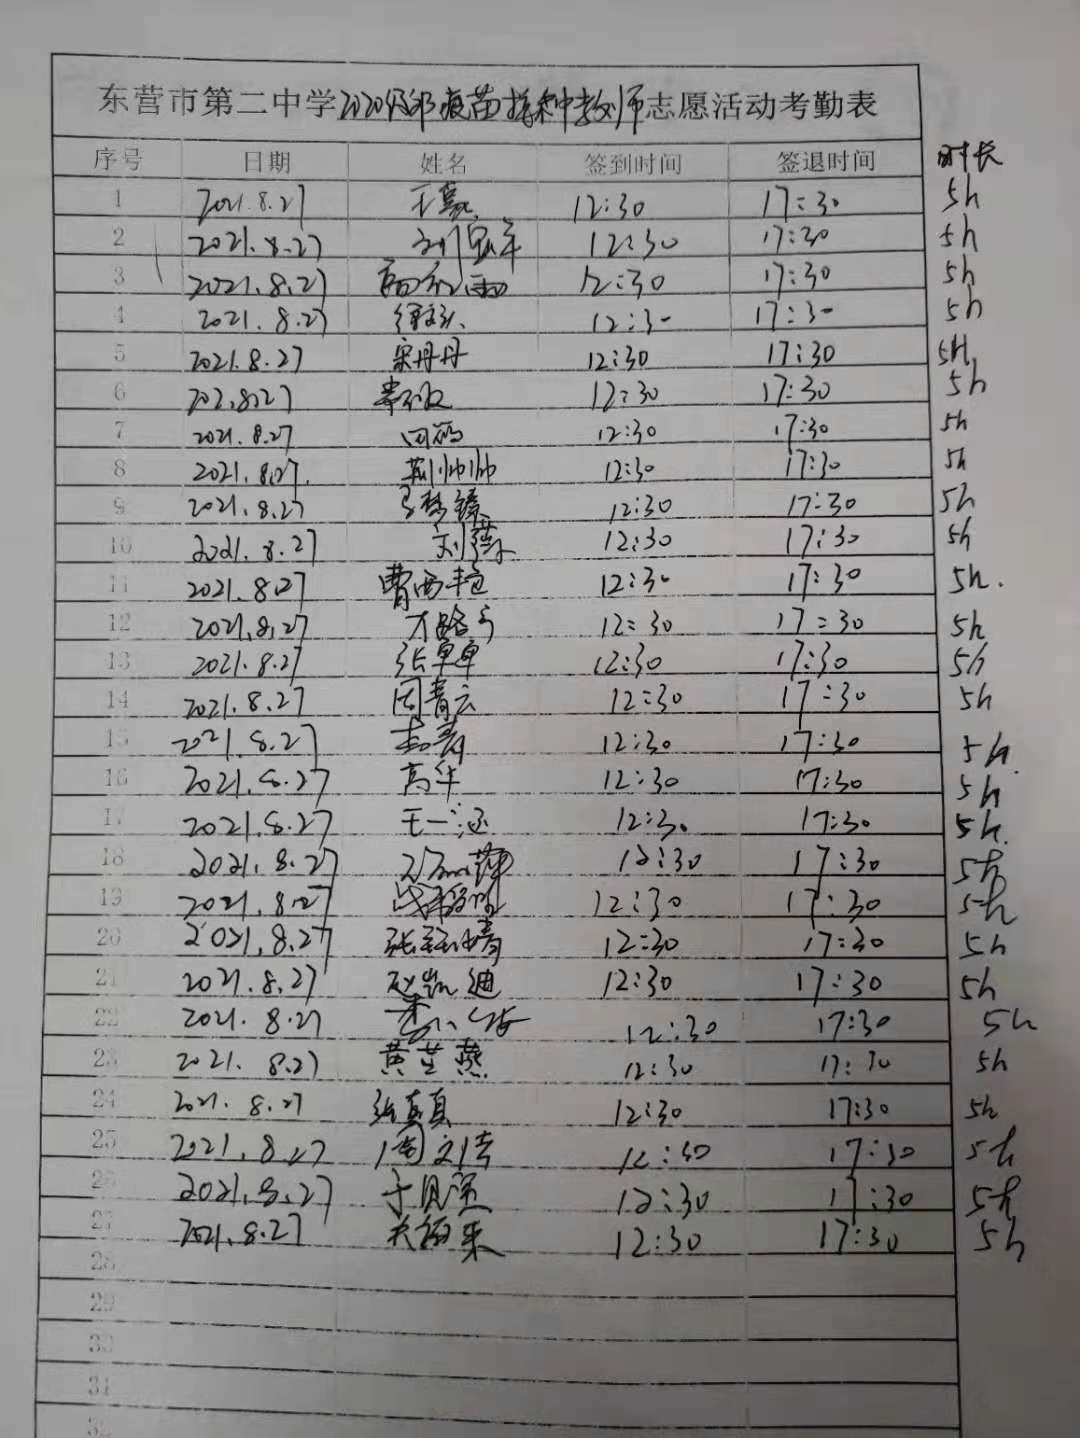 东营市第二中学2020级部疫苗接种教师志愿活动考勤表
序号 日期 姓名 签到时间 签退时间 时长
1 2021.8.27 12:30 17:30 5h
2 2021.8.27 12:30 17:30 5h
3 2021.8.27 12:30 17:30 5h
4 2021.8.27 12:30 17:30 5h
5 2021.8.27 宋丹丹 12:30 17:30 5H
6 202.8.27 12:30 17:30 5h
7 2021.8.27 12:30 17:30 5h
8 2021.8.27. 荆帅帅 12:30 17:30 5h
9 2021.8.27 12:30 17:30 5h
10 2021.8.27 12:30 17:30 5h
11 2021.8.27 曹西艳 12:30 17:30 5h.
12 2021.8.27 12:30 17:30 5h
13 2021.8.27 张卓卓 12:30 17:30 5h
14 2021.8.27 周青云 12:30 17:30 5h
15 2021.8.27 12:30 17:30 5h.
16 2021.8.27 高华 12:30 17:30 5h
17 2021.8.27 王一涵 12:30 17:30 5h.
18 2021.8.27 12:30 17:30 5h
19 2021.8.27 12:30 17:30 5h
20 2021.8.27 12:30 17:30 5h
21 2021.8.27 赵凯迪 12:30 17:30 5h
22 2021.8.27 12:30 17:30 5h
23 2021.8.27 黄芷燕 12:30 17:30 5h
24 2021.8.27 张真真 12:30 17:30 5h
25 2021.8.27 12:30 17:30 5h
26 2021.8.27 12:30 17:30 5h
27 2021.8.27 12:30 17:30 5h
28
29
30
31
32